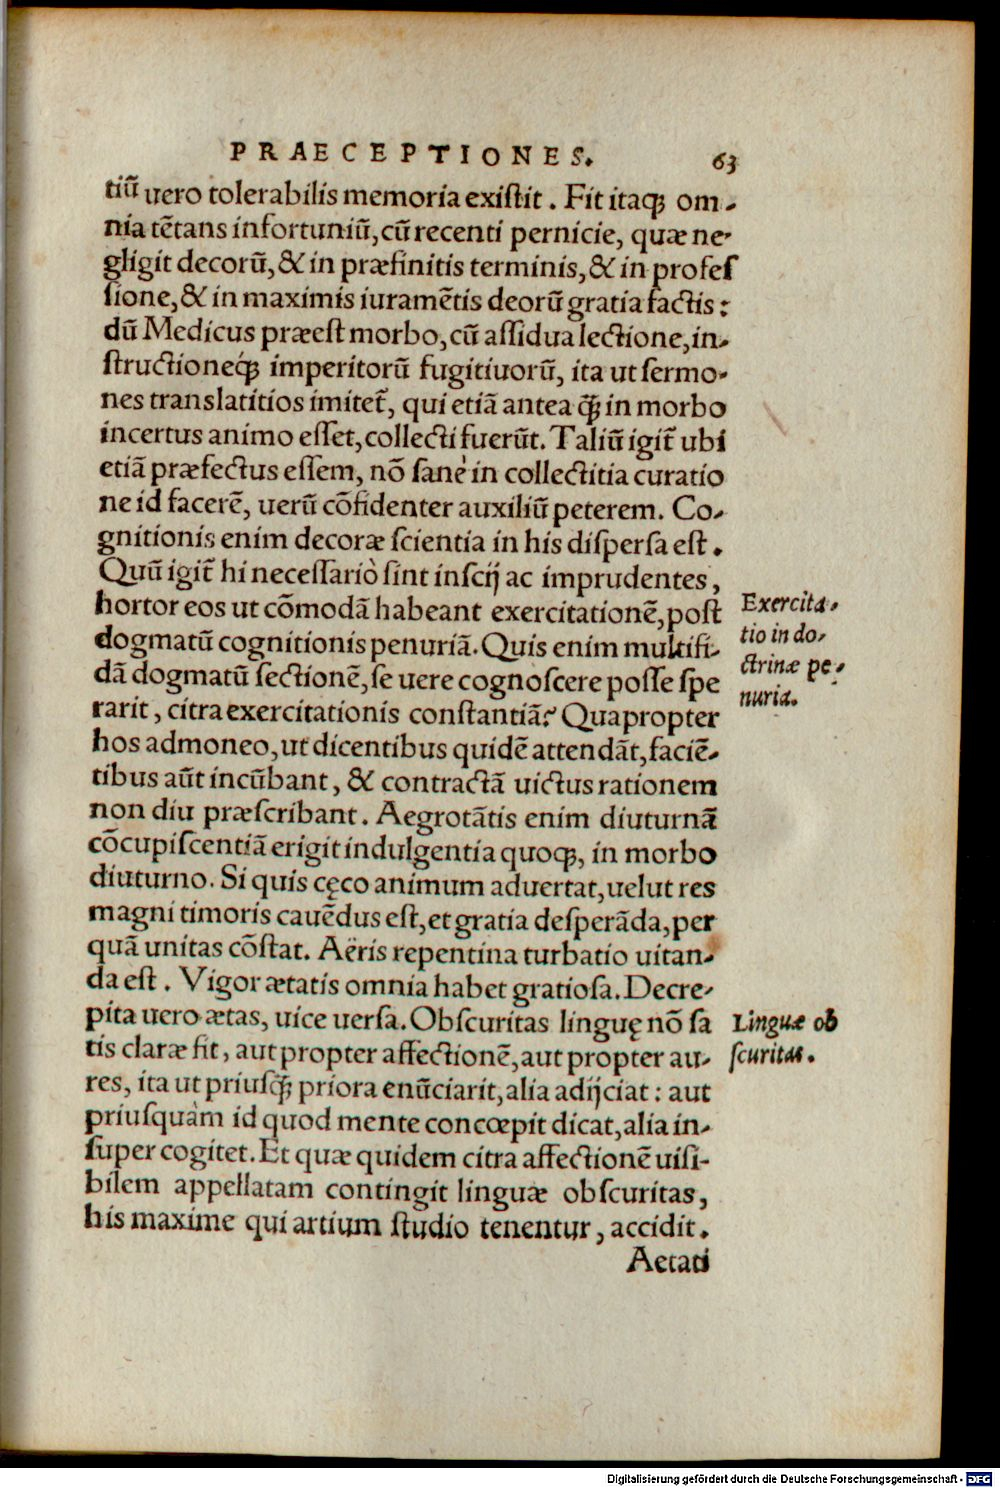 PRAECEPTIONES. 63
tiũ uero tolerabilis memoria exiſtit. Fit itaqꝫ om-
nia tẽtans infortuniũ, cũ recenti pernicie, quæ ne-
gligit decorũ, & in præfinitis terminis, & in profeſ
ſione, & in maximis iuramẽtis deorũ gratia factis:
dũ Medicus præeſt morbo, cũ aſſidua lectione, in-
ſtructioneqꝫ́ imperitorũ fugitiuorũ, ita ut ſermo-
nes translatitios imitet̃, qui etiã antea ꝙ̃ in morbo
incertus animo eſſet, collecti fuerũt. Taliũ igit̃ ubi
etiã præfectus eſſem, nõ ſanè in collectitia curatio
ne id facerẽ, uerũ cõfidenter auxiliũ peterem. Co-
gnitionis enim decoræ ſcientia in his diſperſa eſt.
Quũ igit̃ hi neceſſariò ſint inſcij ac imprudentes,
hortor eos ut cõmodã habeant exercitationẽ, poſt
dogmatũ cognitionis penuriã. Quis enim multifi-
dã dogmatũ ſectionẽ, ſe uere cognoſcere poſſe ſpe
rarit, citra exercitationis conſtantiã? Quapropter
hos admoneo, ut dicentibus quidẽ attendãt, faciẽ-
tibus aũt incũbant, & contractã uictus rationem
non diu præſcribant. Aegrotãtis enim diuturnã
cõcupiſcentiã erigit indulgentia quoqꝫ, in morbo
diuturno. Si quis cęco animum aduertat, uelut res
magni timoris cauẽdus eſt, et gratia deſperãda, per
quã unitas cõſtat. Aëris repentina turbatio uitan-
da eſt. Vigor ætatis omnia habet gratioſa. Decre-
pita uero ætas, uice uerſa. Obſcuritas linguę nõ ſa
tis claræ fit, aut propter affectionẽ, aut propter au-
res, ita ut priuſꝙ̃ priora enũciarit, alia adijciat: aut
priuſquàm id quod mente concœpit dicat, alia in-
ſuper cogitet. Et quæ quidem citra affectionẽ uiſi-
bilem appellatam contingit linguæ obſcuritas,
his maxime qui artium ſtudio tenentur, accidit.
Aetati
Exercita-
tio in do-
ctrinæ pe-
nuria.
Linguæ ob
ſcuritas.
Digitalisierung gefördert durch die Deutsche Forschungsgemeinschaft - DFG